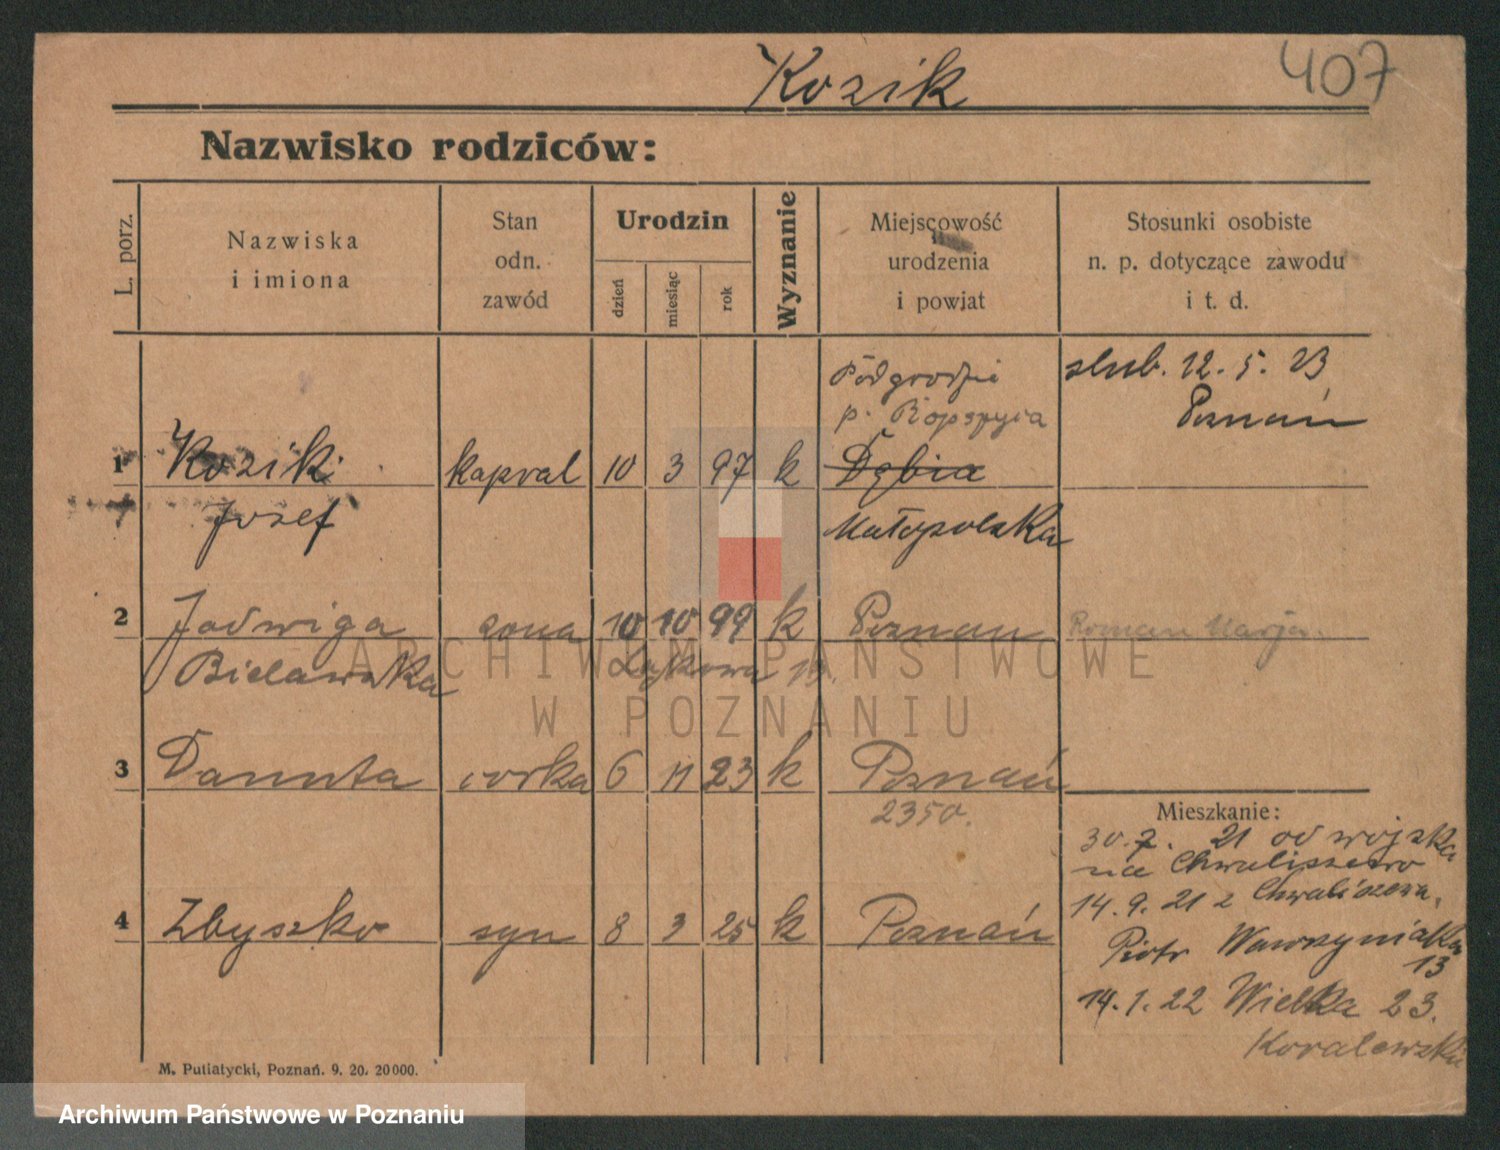 Kozik
407
Nazwisko rodziców:
L. porz.
Nazwiska
i imiona
Stan
odn.
zawód
Urodzin
dzień
miesiąc
rok
Wyznanie
Miejscowość
urodzenia
i powiat
Stosunki osobiste
n. p. dotyczące zawodu
i t. d.
Podgrodzie
p. Ropczyca
slub. 12. 5. 23
Poznań
1 Kozik kapral 10 3 97 k Dębia
Josef Małopolska
2 Jadwiga zona 10 10 99 k Poznan Roman Marja.
Bielawska Łąkowa 13.
3 Danuta corka 6 11 23 k Poznań
2350.
Mieszkanie:
30. 7. 21 od wojska
na Chwaliszewo
14. 9. 21 z Chwaliszewa,
4 Zbyszko syn 8 3 25 k Poznań
Piotr Wawrzyniaka
13
14. 1. 22 Wielka 23.
Kovalewski
M. Putiatycki, Poznań. 9. 20. 20000.
ARCHIWUM PAŃSTWOWE
W POZNANIU
Archiwum Państwowe w Poznaniu